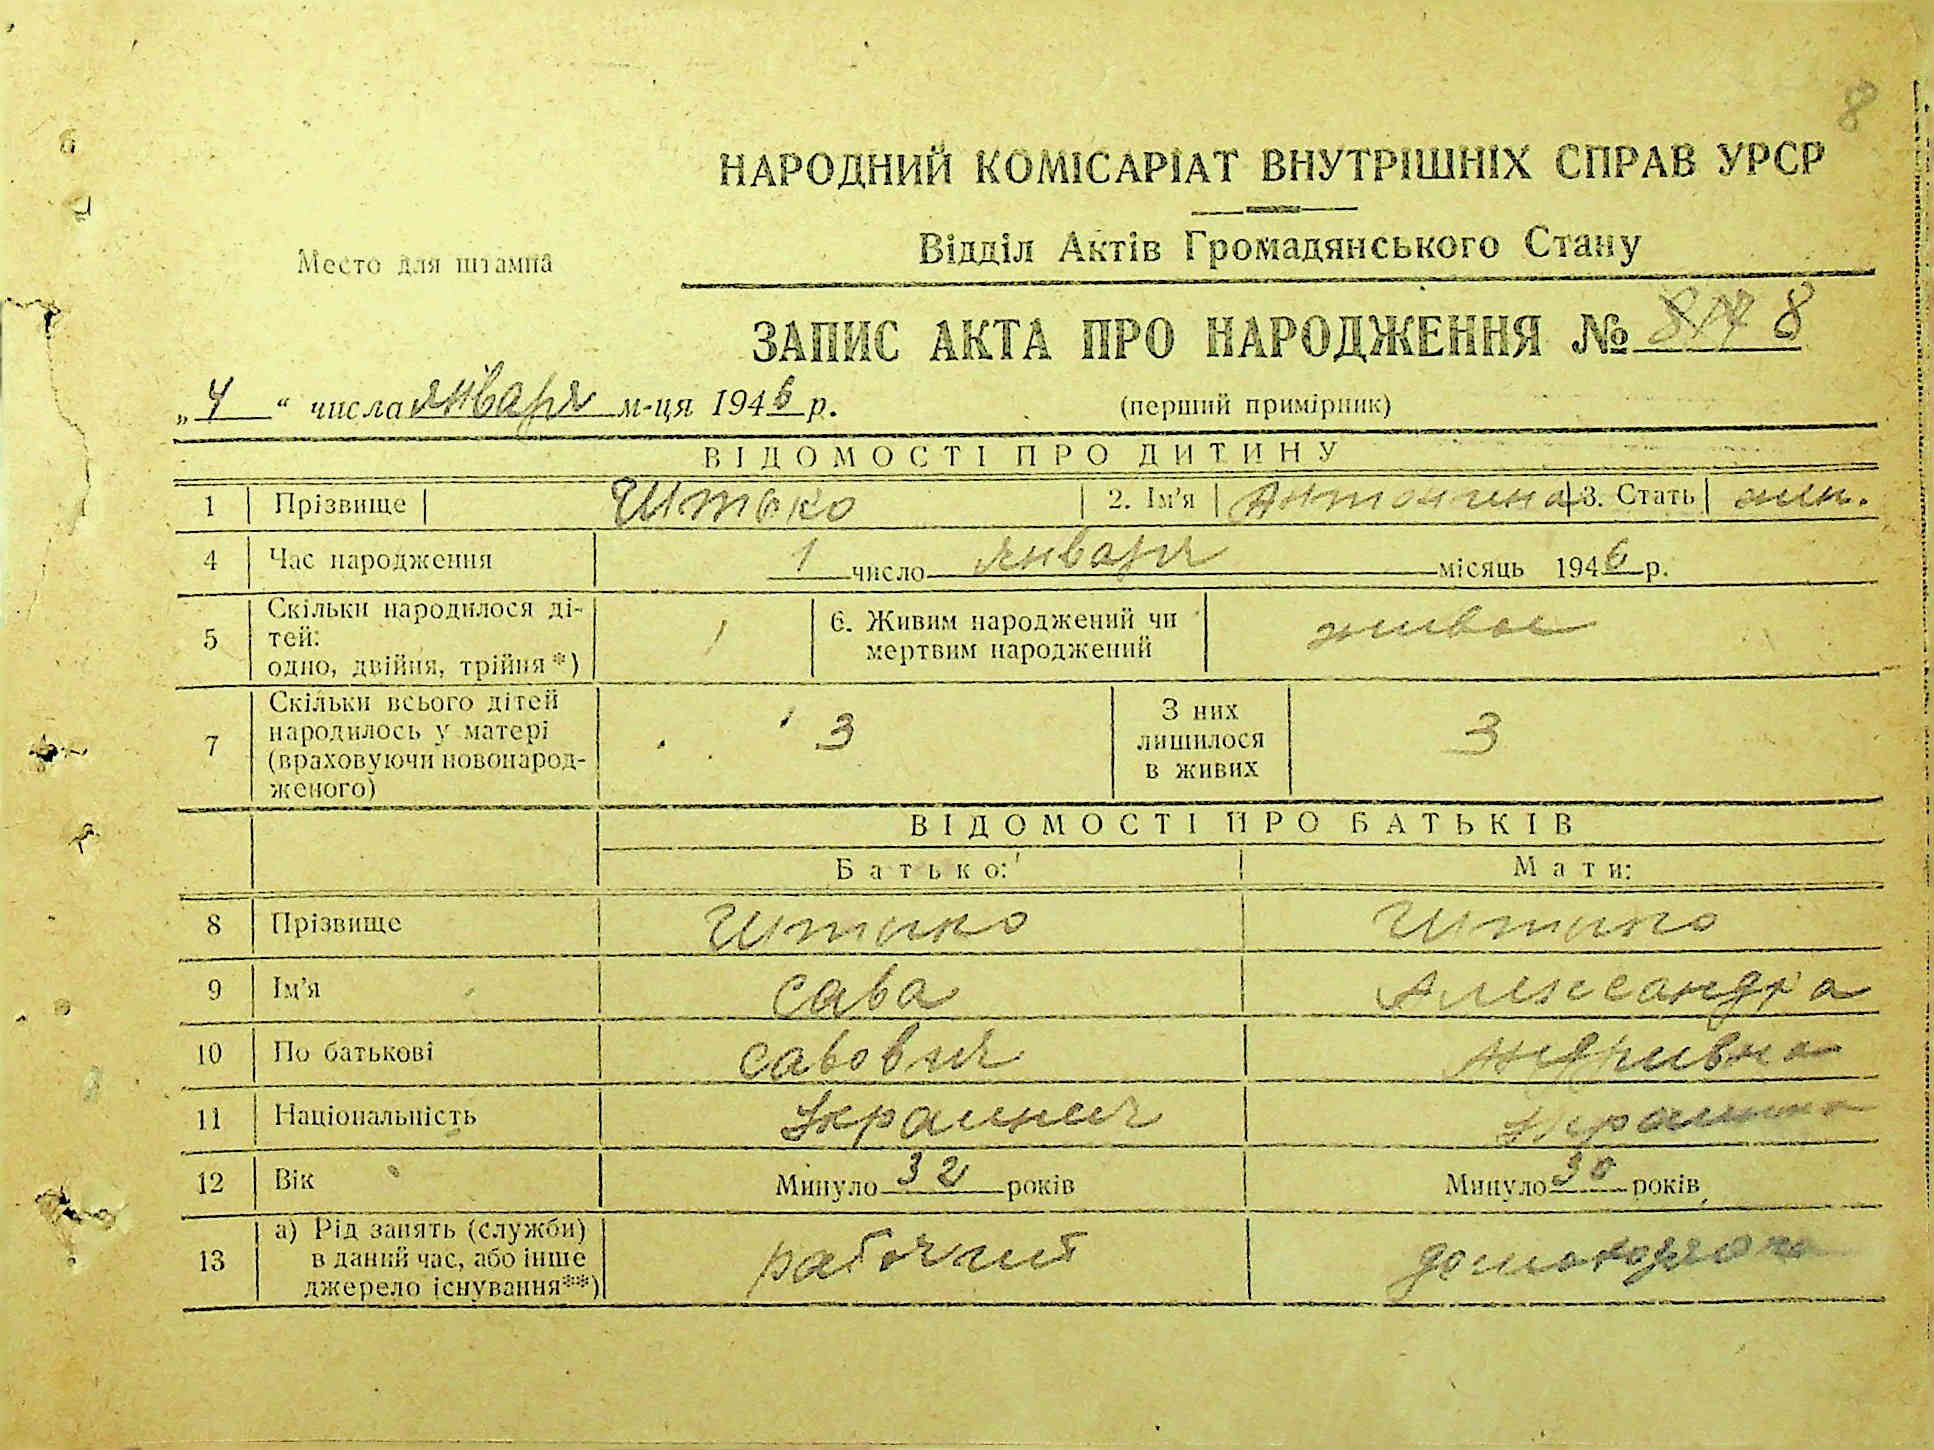 8
НАРОДНИЙ КОМІСАРІАТ ВНУТРІШНІХ СПРАВ УРСР
Место для штампа
Відділ Актів Громадянського Стану
ЗАПИС АКТА ПРО НАРОДЖЕННЯ № 8
„4“ числа января м-ця 1946 р.
(перший примірник)
ВІДОМОСТІ ПРО ДИТИНУ
1 Прізвище 2. Ім'я Антонина 3. Стать жен.
4 Час народження 1 число января місяць 1946 р.
5 Скільки народилося ді-
тей:
одно, двійня, трійня *) 1 6. Живим народжений чи
мертвим народжений живое
7 Скільки всього дітей
народилось у матері
(враховуючи новонарод-
женого) 3 З них
лишилося
в живих 3
ВІДОМОСТІ ПРО БАТЬКІВ
Батько: Мати:
8 Прізвище
9 Ім'я Сава Александра
10 По батькові Савович
11 Національність
12 Вік Минуло 32 років Минуло 30 років
13 а) Рід занять (служби)
в даний час, або інше
джерело існування**) рабочий